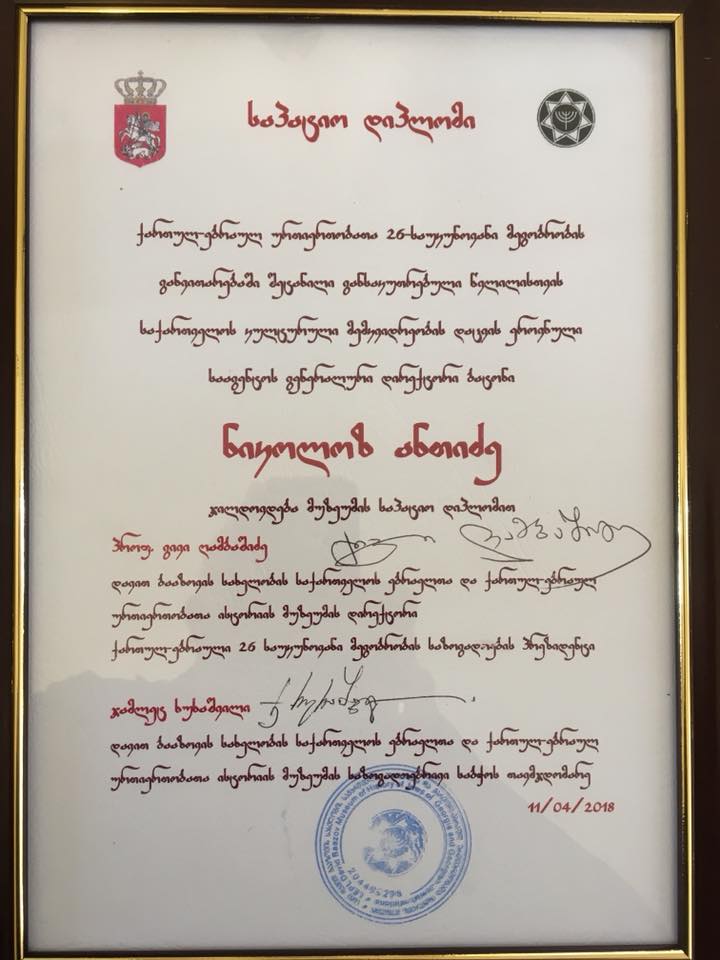 საპატიო დიპლომი
ქართულ-ებრაულ ურთიერთობათა 26-საუკუნოვანი მეგობრობის
განვითარებაში შეტანილი განსაკუთრებული წვლილისთვის
საქართველოს კულტურული მემკვიდრეობის დაცვის ეროვნული
სააგენტოს გენერალური დირექტორი ბატონი
ნიკოლოზ ანთიძე
ჯილდოვდება მუზეუმის საპატიო დიპლომით
პროფ. გივი ღამბაშიძე
დავით ბააზოვის სახელობის საქართველოს ებრაელთა და ქართულ-ებრაულ
ურთიერთობათა ისტორიის მუზეუმის დირექტორი
ქართულ-ებრაული 26 საუკუნოვანი მეგობრობის საზოგადოების პრეზიდენტი
ჯამლეტ ხუხაშვილი
დავით ბააზოვის სახელობის საქართველოს ებრაელთა და ქართულ-ებრაულ
ურთიერთობათა ისტორიის მუზეუმის საზოგადოებრივი საბჭოს თავმჯდომარე
11/04/2018
LEPL David Baazov Museum of History of Jews of Georgia and Georgian-Jewish Relations
204495298